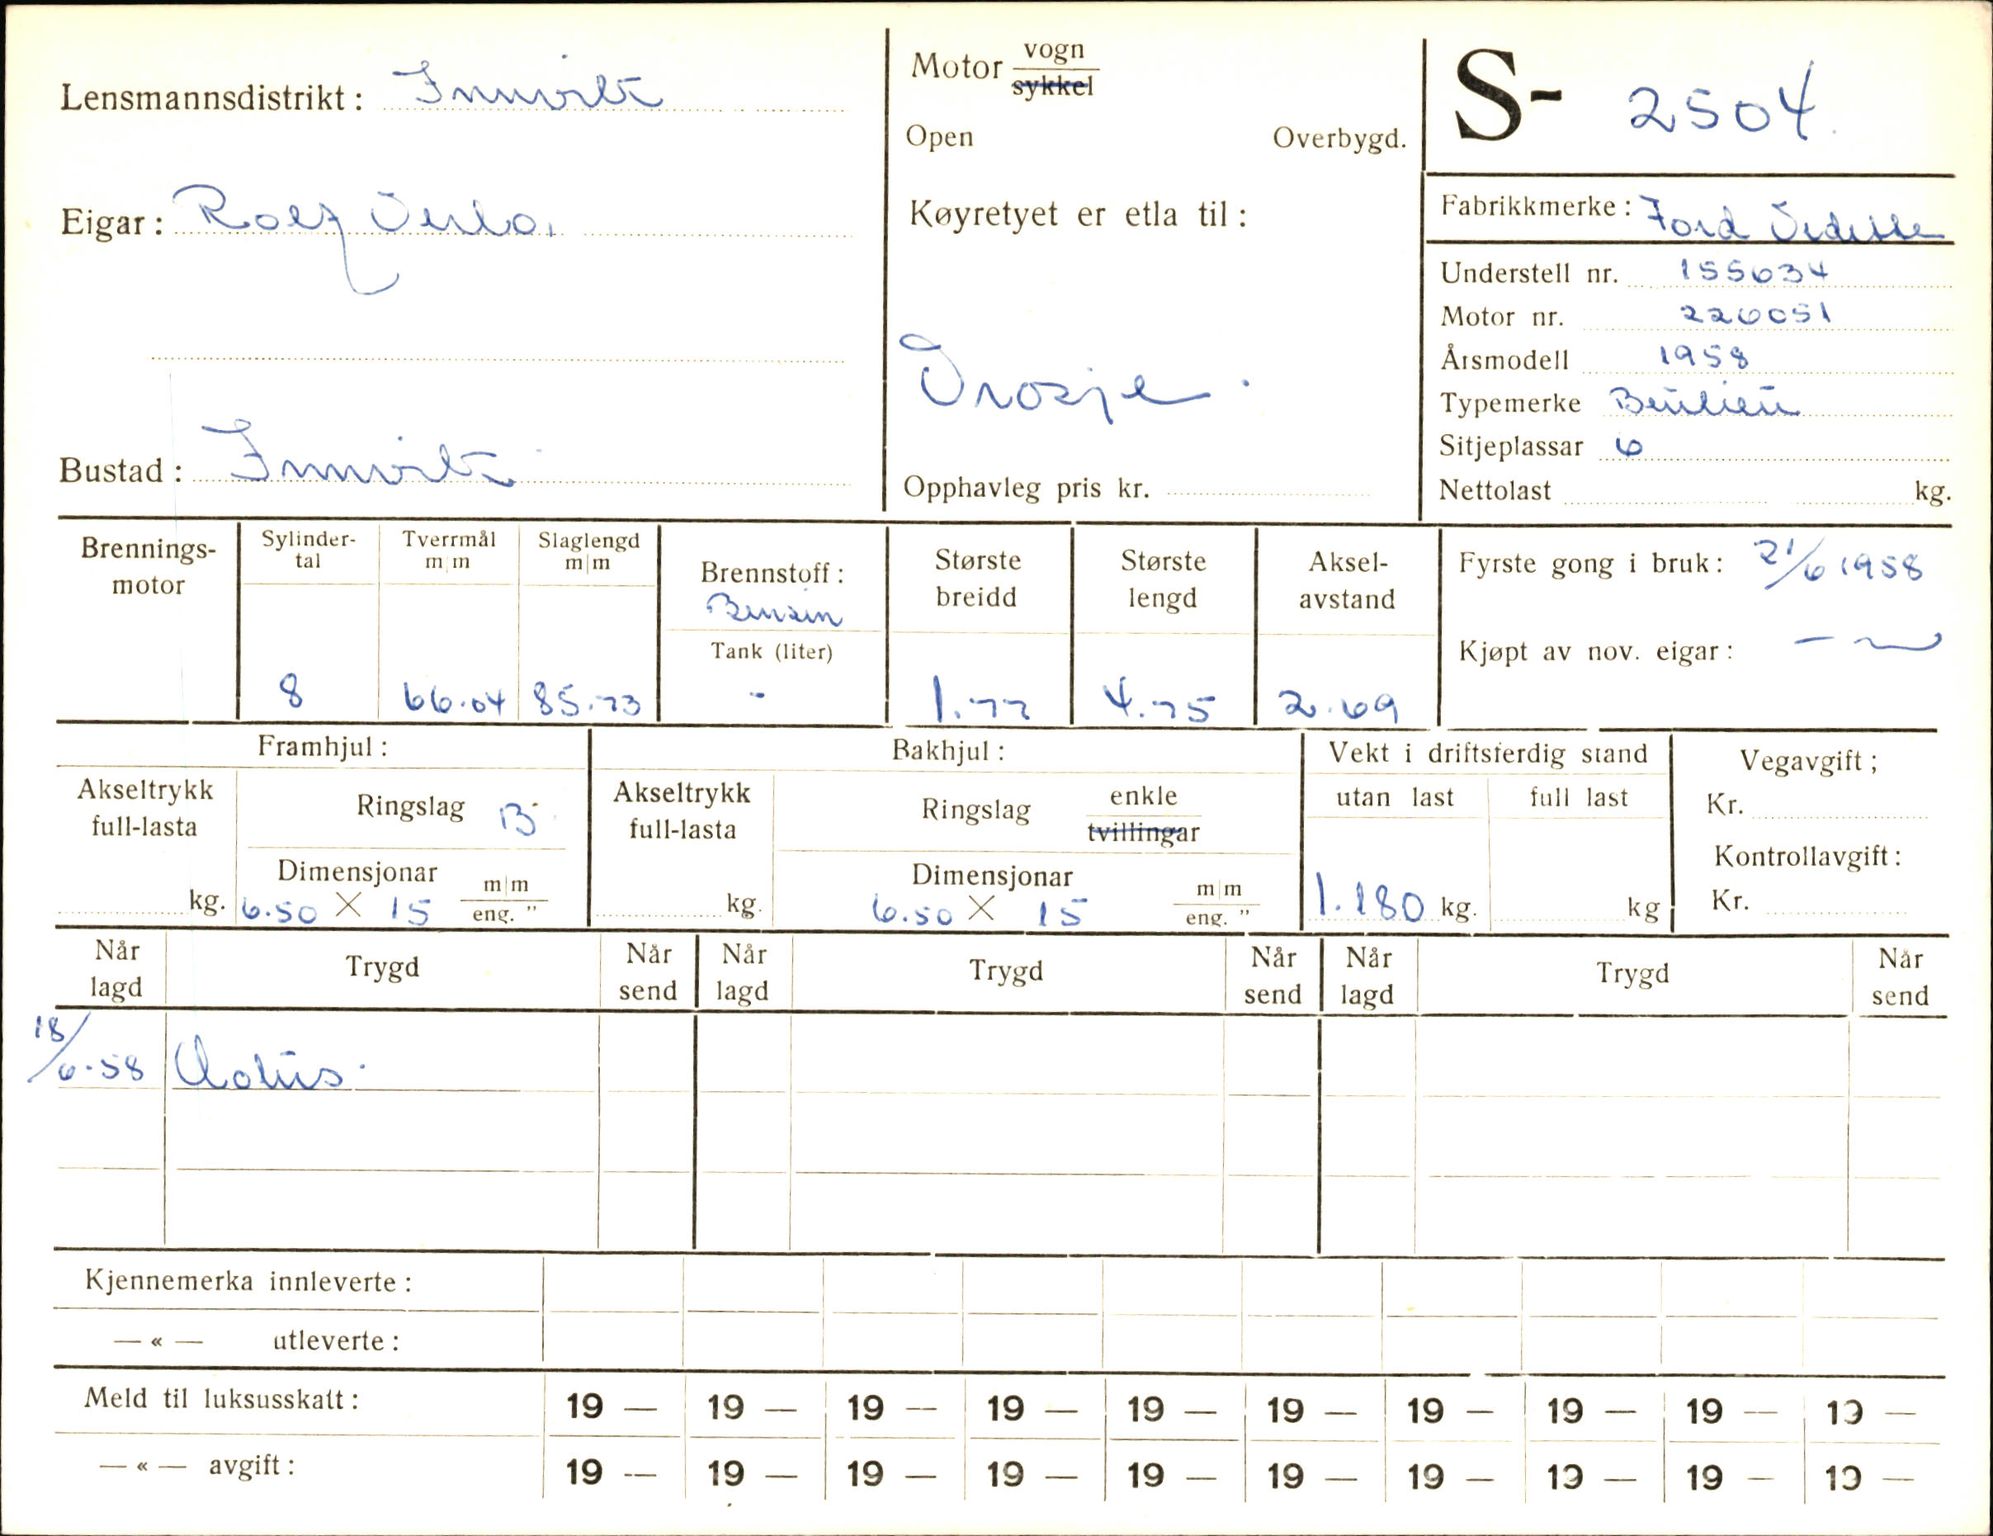 Lensmannsdistrikt: Innvik
Eigar: Rolf
Bustad: Innvik
Motor vogn
sykkel
Open Overbygd.
Køyretyet er etla til:
Drosje.
Opphavleg pris kr.
S- 2504
Fabrikkmerke: Ford Vedette
Understell nr. 155634
Motor nr. 226051
Årsmodell 1958
Typemerke Beulieu
Sitjeplassar 6
Nettolast kg.
Brennings-
motor
Sylinder-
tal
8
Tverrmål
m|m
66.04
Slaglengd
m|m
85.73
Brennstoff:
Bensin
Tank (liter)
-
Største
breidd
1.77
Største
lengd
4.75
Aksel-
avstand
2.69
Fyrste gong i bruk: 21/6 1958
Kjøpt av nov. eigar: — 〃
Framhjul:
Akseltrykk
full-lasta
kg.
Ringslag B.
Dimensjonar
6.50 X 15 m|m
eng. "
Bakhjul:
Akseltrykk
full-lasta
kg.
Ringslag enkle
tvillingar
Dimensjonar
6.50 X 15 m|m
eng. "
Vekt i driftsferdig stand
utan last full last
1.180 kg. kg
Vegavgift;
Kr.
Kontrollavgift:
Kr.
Når
lagd
Trygd
Når
send
Når
lagd
Trygd
Når
send
Når
lagd
Trygd
Når
send
18/6.58
Kjennemerka innleverte:
— « — utleverte:
Meld til luksusskatt: 19 — 19 — 19 — 19 — 19 — 19 — 19 — 19 — 19 — 19 —
— « — avgift: 19 — 19 — 19 — 19 — 19 — 19 — 19 — 19 — 19 — 19 —